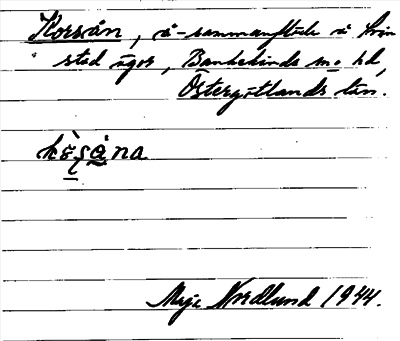 Korsån, å-sammanflöde å Grin
stad ägor, Bankekinds sn o. hd,
Östergötlands län.
kɷ̀ʂåna
Nordlund 1944.